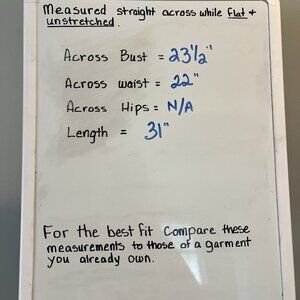 Measured straight across while flat +
unstretched.
Across Bust = 23 1/2"
Across waist = 22"
Across Hips = N/A
Length = 31"
For the best fit Compare these
measurements to those of a garment
you already own.